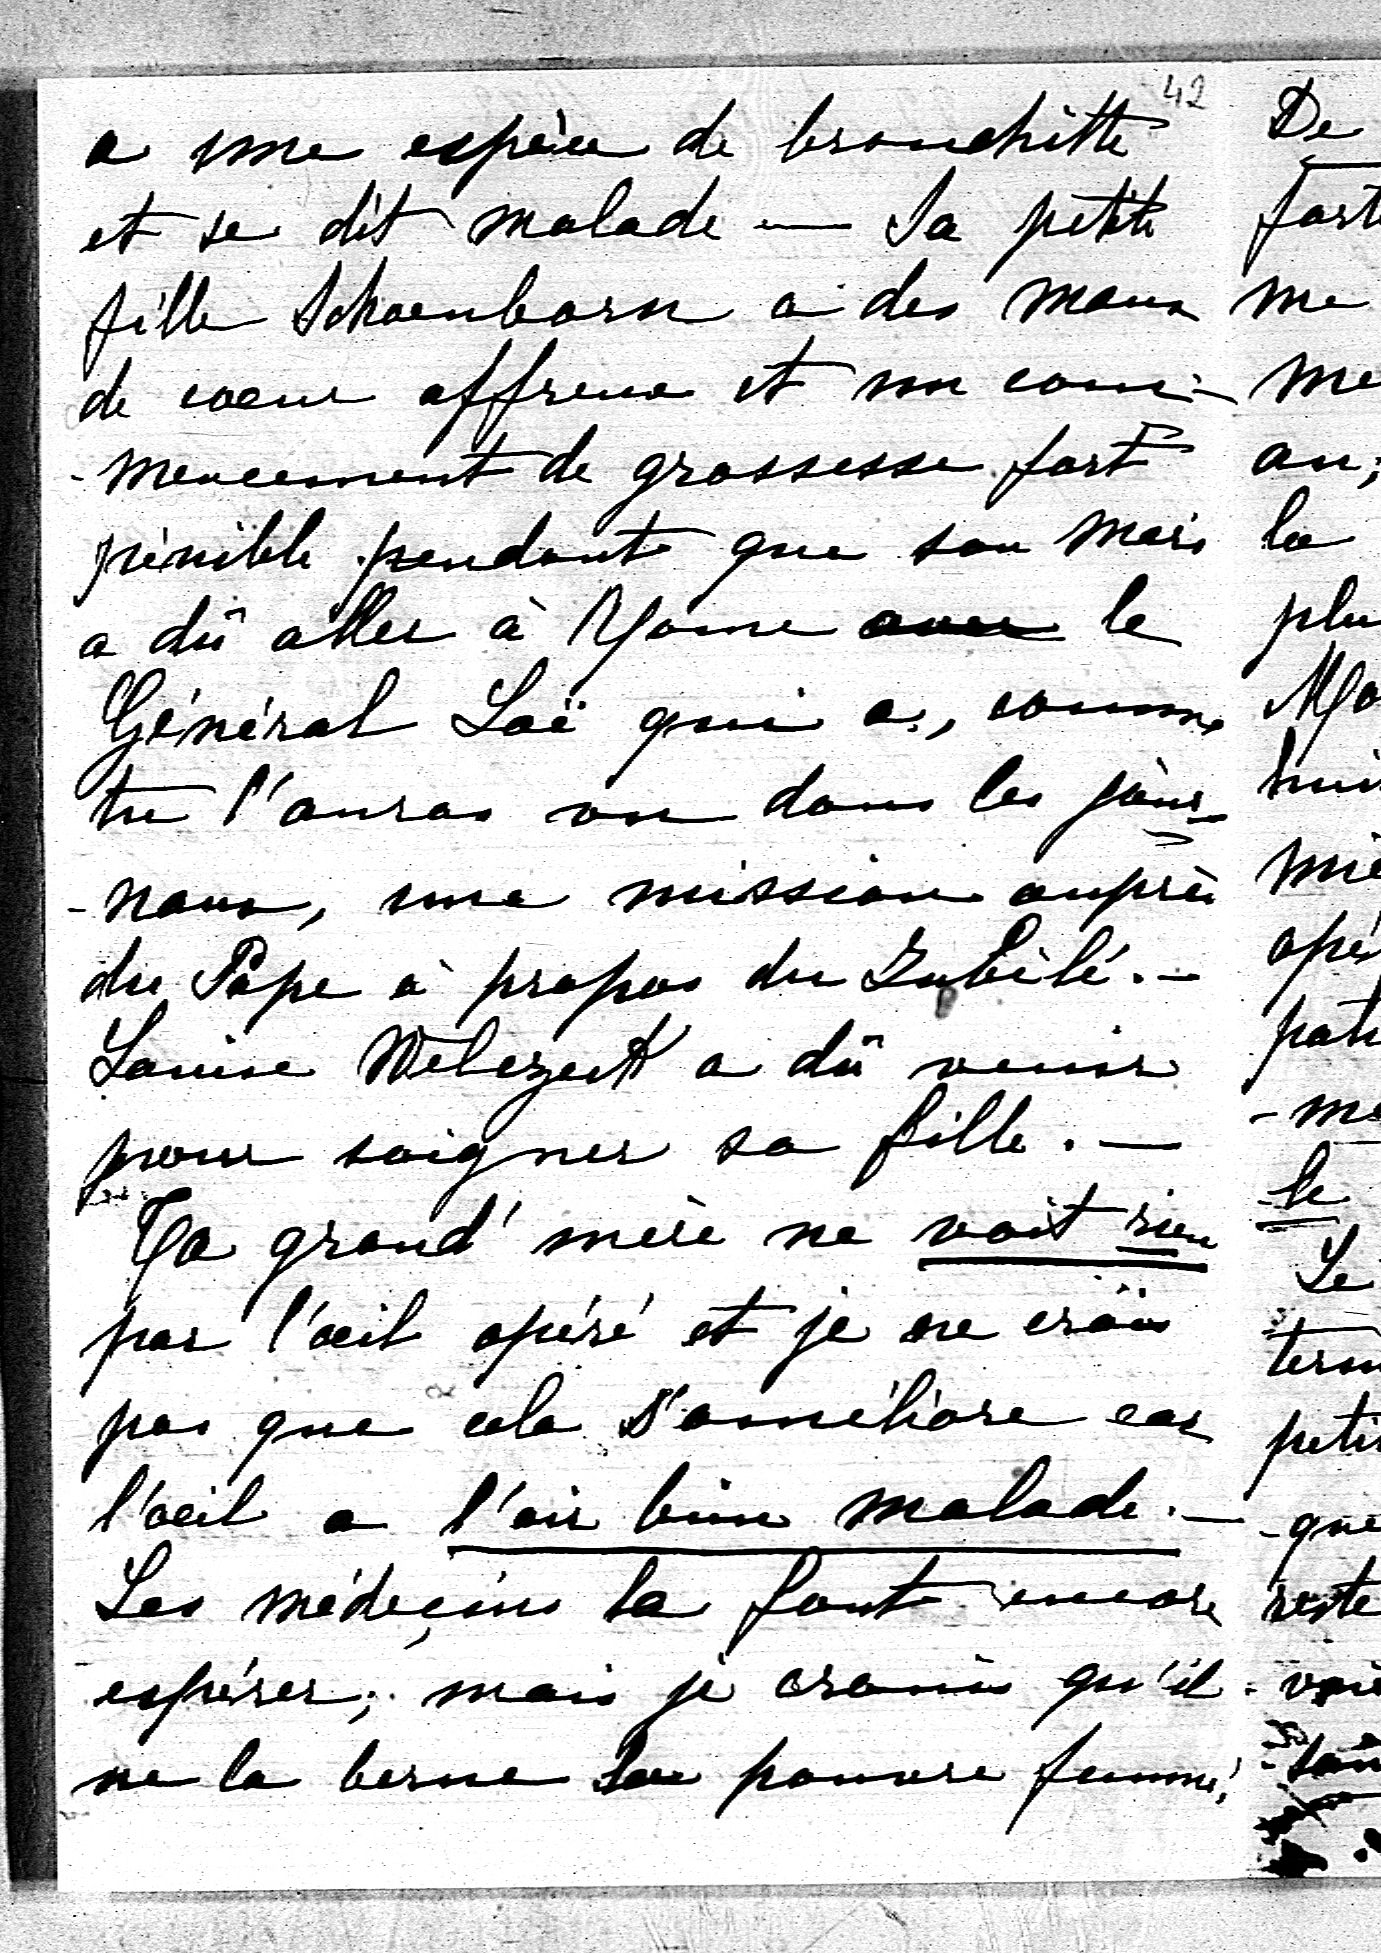 42
a une espèce de bronchitte
et se dit malade — Sa petite
fille Schoenborn a des maux
de coeur affreux et un com-
-mencement de grossesse fort
pénible pendant que son mari
a dû aller à Rome avec le
Général Loë qui a, comme
tu l'auras vu dans les jour-
-naux, une mission auprès
du Pape à propos du Jubilé. —
Louise Welczeck a dû venir
pour soigner sa fille. —
Ta grand'mère ne voit rien
par l'oeil opéré et je ne crois
pas que cela s'améliore car
l'oeil a l'air bien malade. —
Les médeçins la font encore
espérer; mais je crains qu'il
ne la berne la pauvre femme!
De
fort
me
me
an;
la
plu
Mo
hui
mie
opé
pati
-me
-le
Le
term
petit
-que
reste